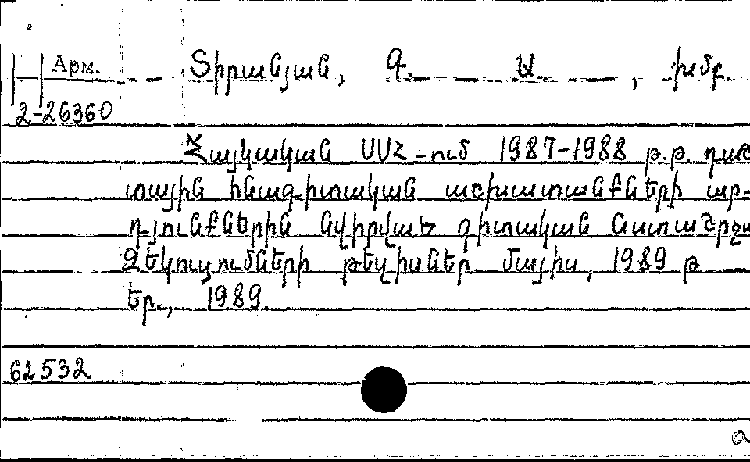 Арм.
Տիրանյան, Գ. Ա. , խմբ.
2-26360
Հայկական ՍՍՀ-ում 1987-1988 թ.թ. դաշ
տային հնագիտական աշխատանքների ար-
դյունքներին նվիրված գիտական նստաշրջա
Զեկուցումների թեզիսներ մայիս, 1989 թ
Եր., 1989.
62532
а